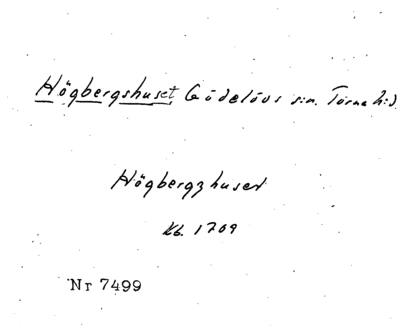 Högbergshuset Gödelövs sn. Torna h:d
Högbergzhuset
Kb. 1709
Nr 7499